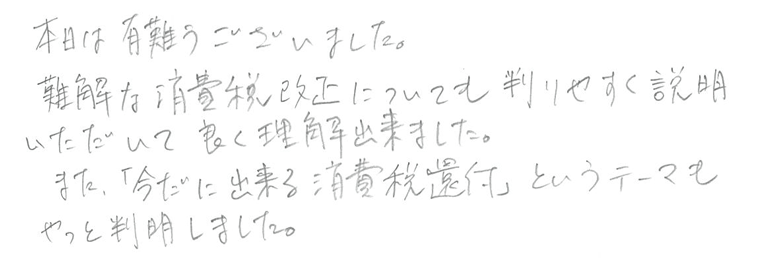 本日は有難うございました。
難解な消費税改正についても判りやすく説明
いただいて良く理解出来ました。
また、「今だに出来る消費税還付」というテーマも
やっと判明しました。